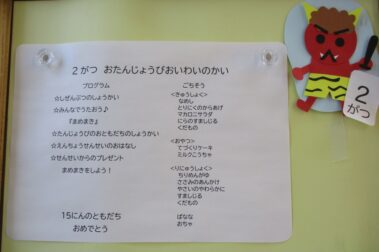 2がつ おたんじょうびおいわいのかい
プログラム
☆しぜんぶつのしょうかい
☆みんなでうたおう♪
『まめまき』
☆たんじょうびのおともだちのしょうかい
☆えんちょうせんせいのおはなし
☆せんせいからのプレゼント
まめまきをしよう！
15にんのともだち
おめでとう
ごちそう
<きゅうしょく>
なめし
とりにくのからあげ
マカロニサラダ
にらのすましじる
くだもの
<おやつ>
てづくりケーキ
ミルクこうちゃ
<りにゅうしょく>
ちりめんがゆ
ささみのあんかけ
やさいのやわらかに
すましじる
くだもの
ばなな
おちゃ
2
がつ